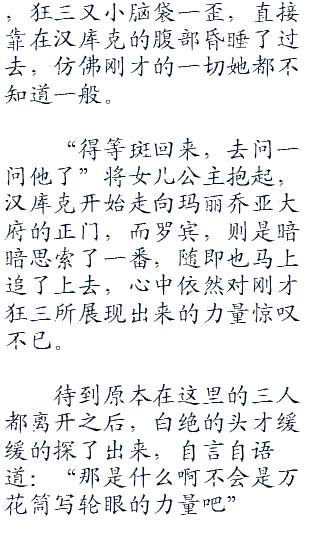 ，狂三又小脑袋一歪，直接
靠在汉库克的腹部昏睡了过
去，仿佛刚才的一切她都不
知道一般。
“得等斑回来，去问一
问他了”将女儿公主抱起，
汉库克开始走向玛丽乔亚大
府的正门，而罗宾，则是暗
暗思索了一番，随即也马上
追了上去，心中依然对刚才
狂三所展现出来的力量惊叹
不已。
待到原本在这里的三人
都离开之后，白绝的头才缓
缓的探了出来，自言自语
道：“那是什么啊不会是万
花筒写轮眼的力量吧”